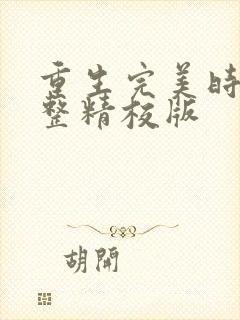 重生完美時
整精校版
胡開